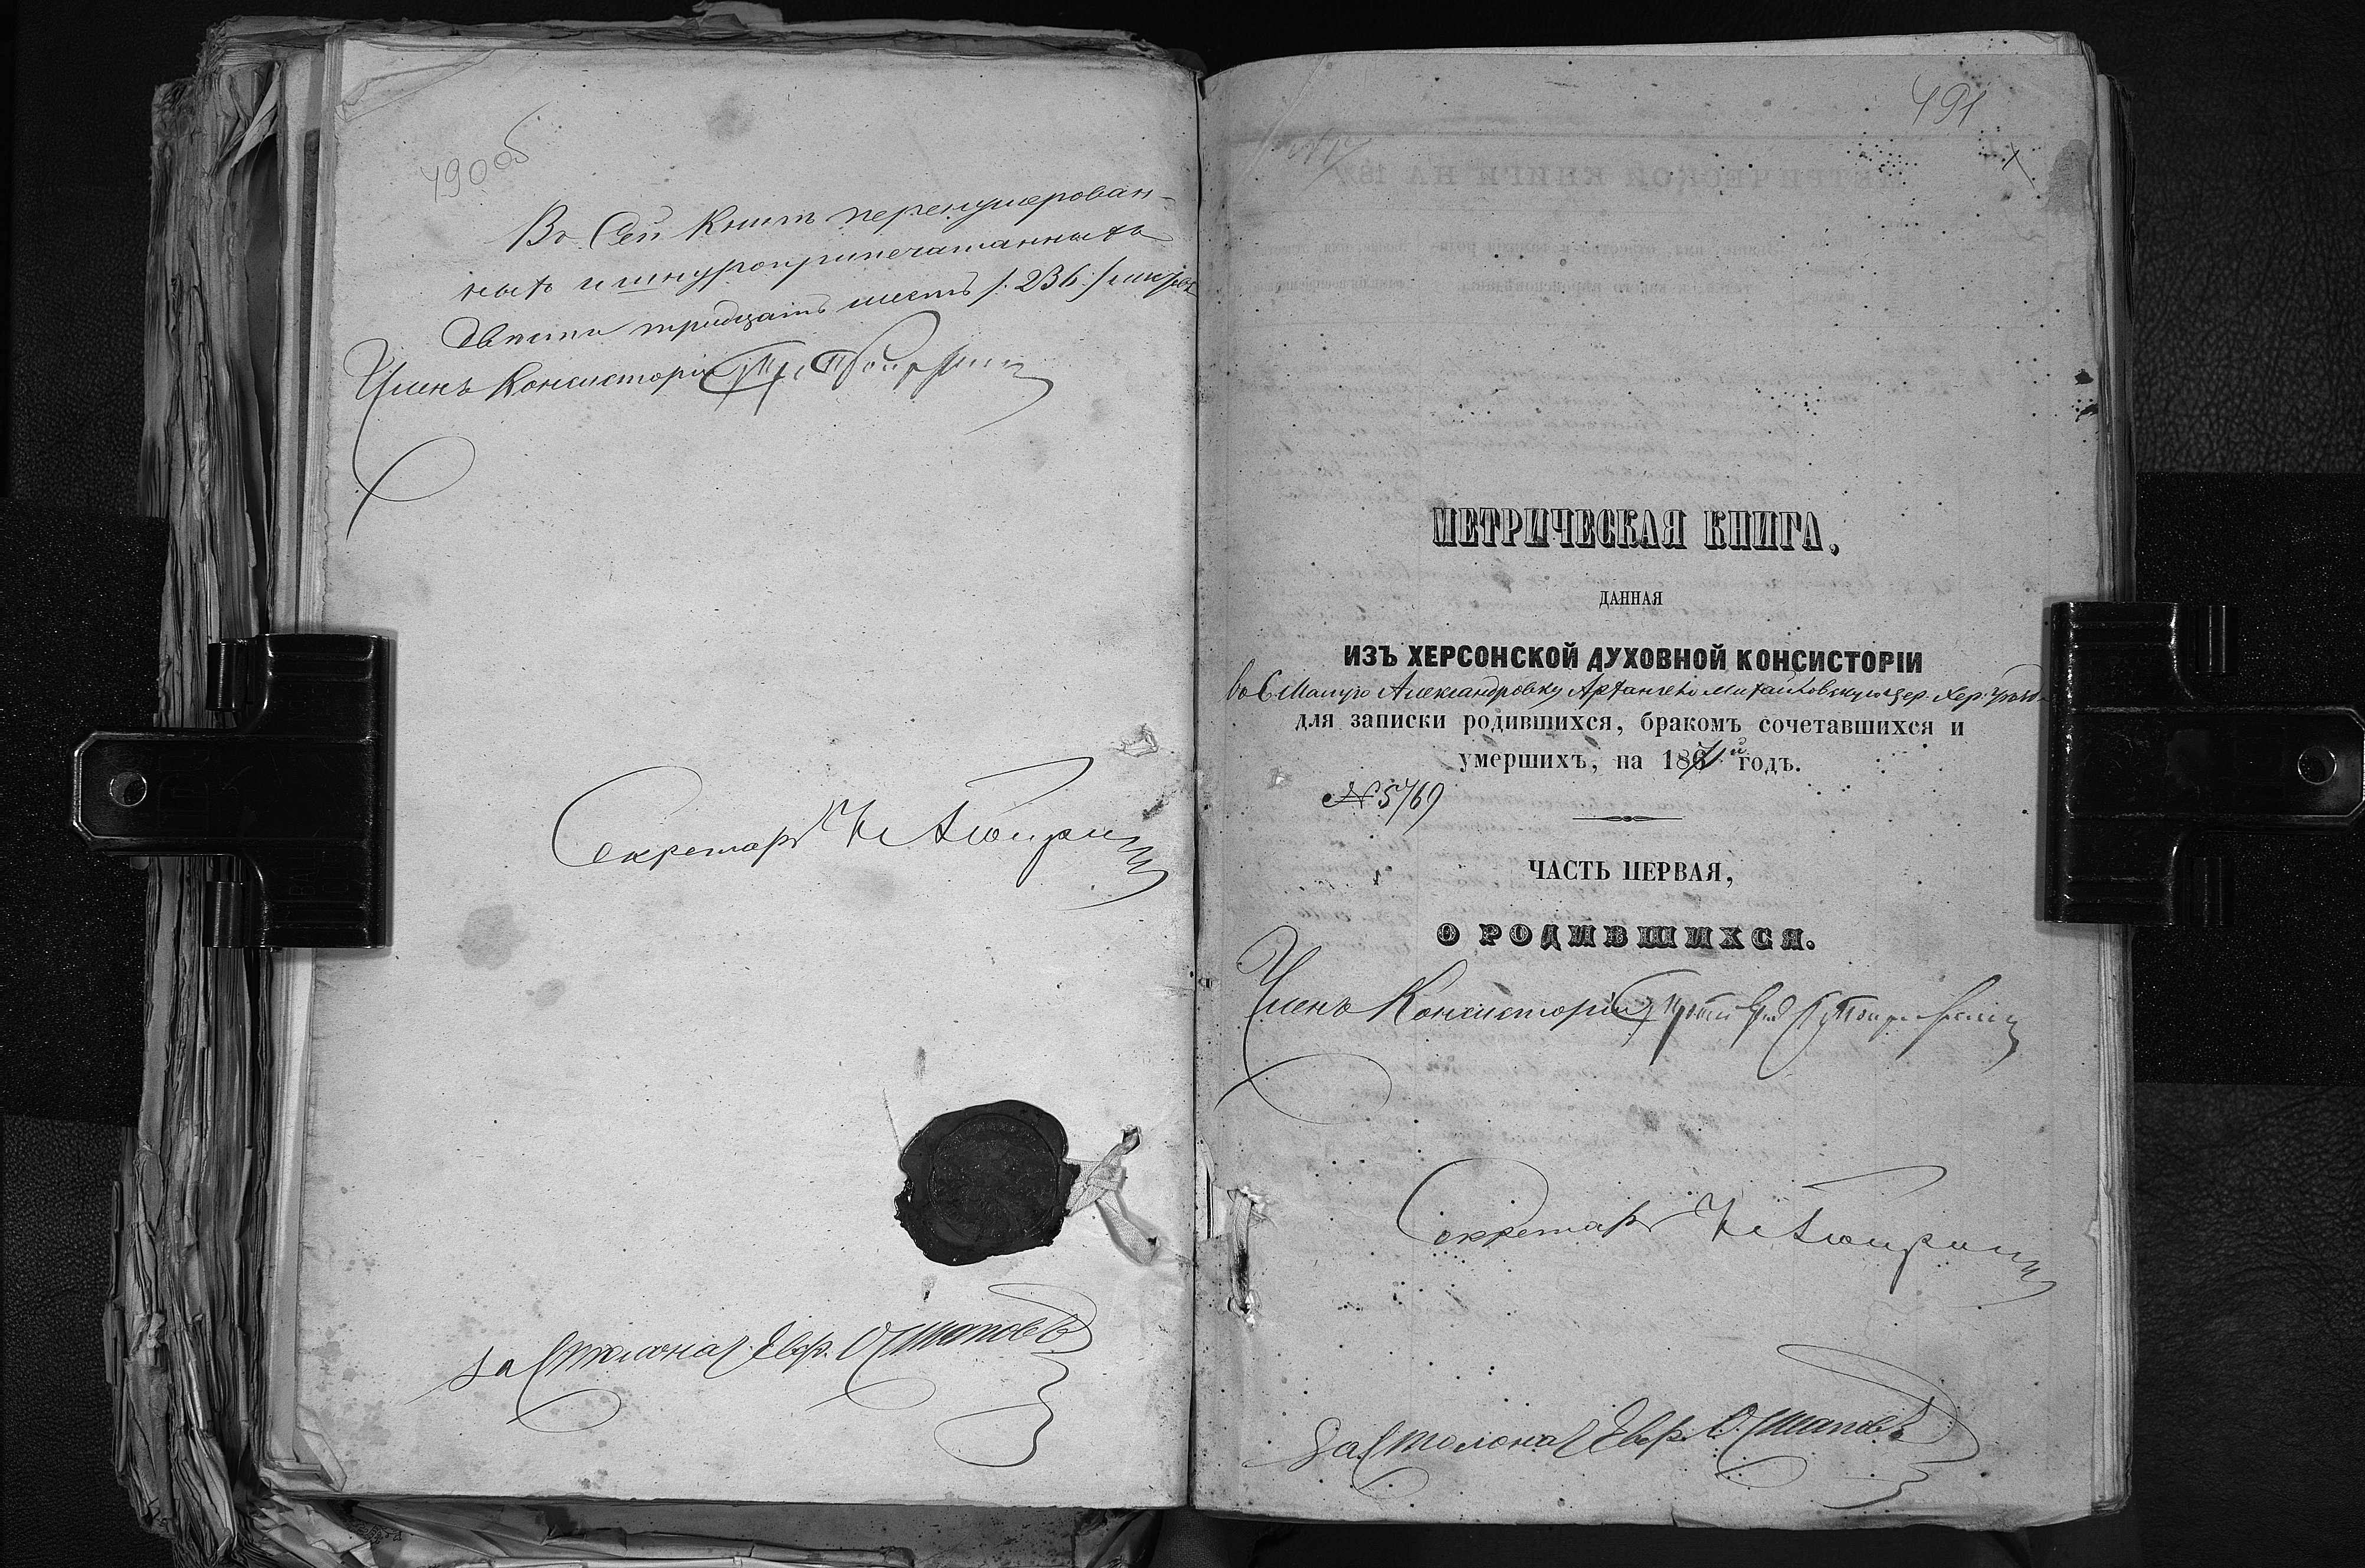 490 об
Въ Сей Книгѣ перенумерован-
ныхъ и шнуроприпечатанныхъ
двѣсти тридцать шесть /:236:/ листовъ
Членъ Консисторіи
Секретарь
За Столонач. Евф. Остаповъ
491
МЕТРИЧЕСКАЯ КНИГА,
ДАННАЯ
ИЗЪ ХЕРСОНСКОЙ ДУХОВНОЙ КОНСИСТОРІИ
во С. Малую Александровку Архангело Михайловскую цер. Хер. уѣзда
для записки родившихся, бракомъ сочетавшихся и
умершихъ, на 1871й годъ.
№ 5769
ЧАСТЬ ПЕРВАЯ,
О РОДИВШИХСЯ.
Членъ Консисторіи
Секретарь
За Столонач. Евф. Остаповъ